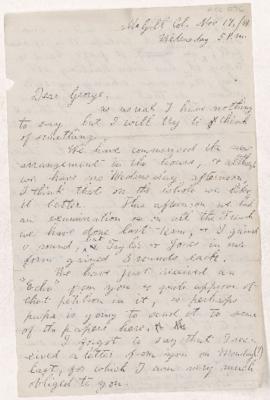 McGill Col. Nov 17,/
Wednesday 5 P.m.
Dear George,
as usual I have nothing
to say but I will try to think
of something.
We have commenced the new
arrangement in the house, & altho
we have no Wednesday afternoon,
I think that on the whole we like
it better. This afternoon we had
an examination on all the French
we have done last term, & I gained
a round, but Taylor & Jones in my
form gained 3 rounds each.
We have just received an
"Echo" from you & quite approve of
that petition in it, & perhaps
papa is going to send it to some
of the papers here.
I forgot to say that I rec-
eived a letter from you on Monday
last, for which I am very much
obliged to you.